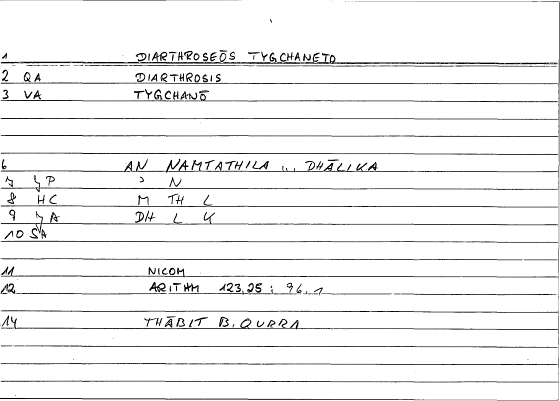 1 DIARTHROSEŌS TYGCHANETO
2 QA DIARTHROSIS
3 VA TYGCHANŌ
6 AN NAMTATHILA ... DHĀLIKA
7 P ) N
8 HC M TH L
9 A DH L K
10 SA
11 NICOM
12 ARITHM 123,25 : 96,1
14 THĀBIT B. QURRA